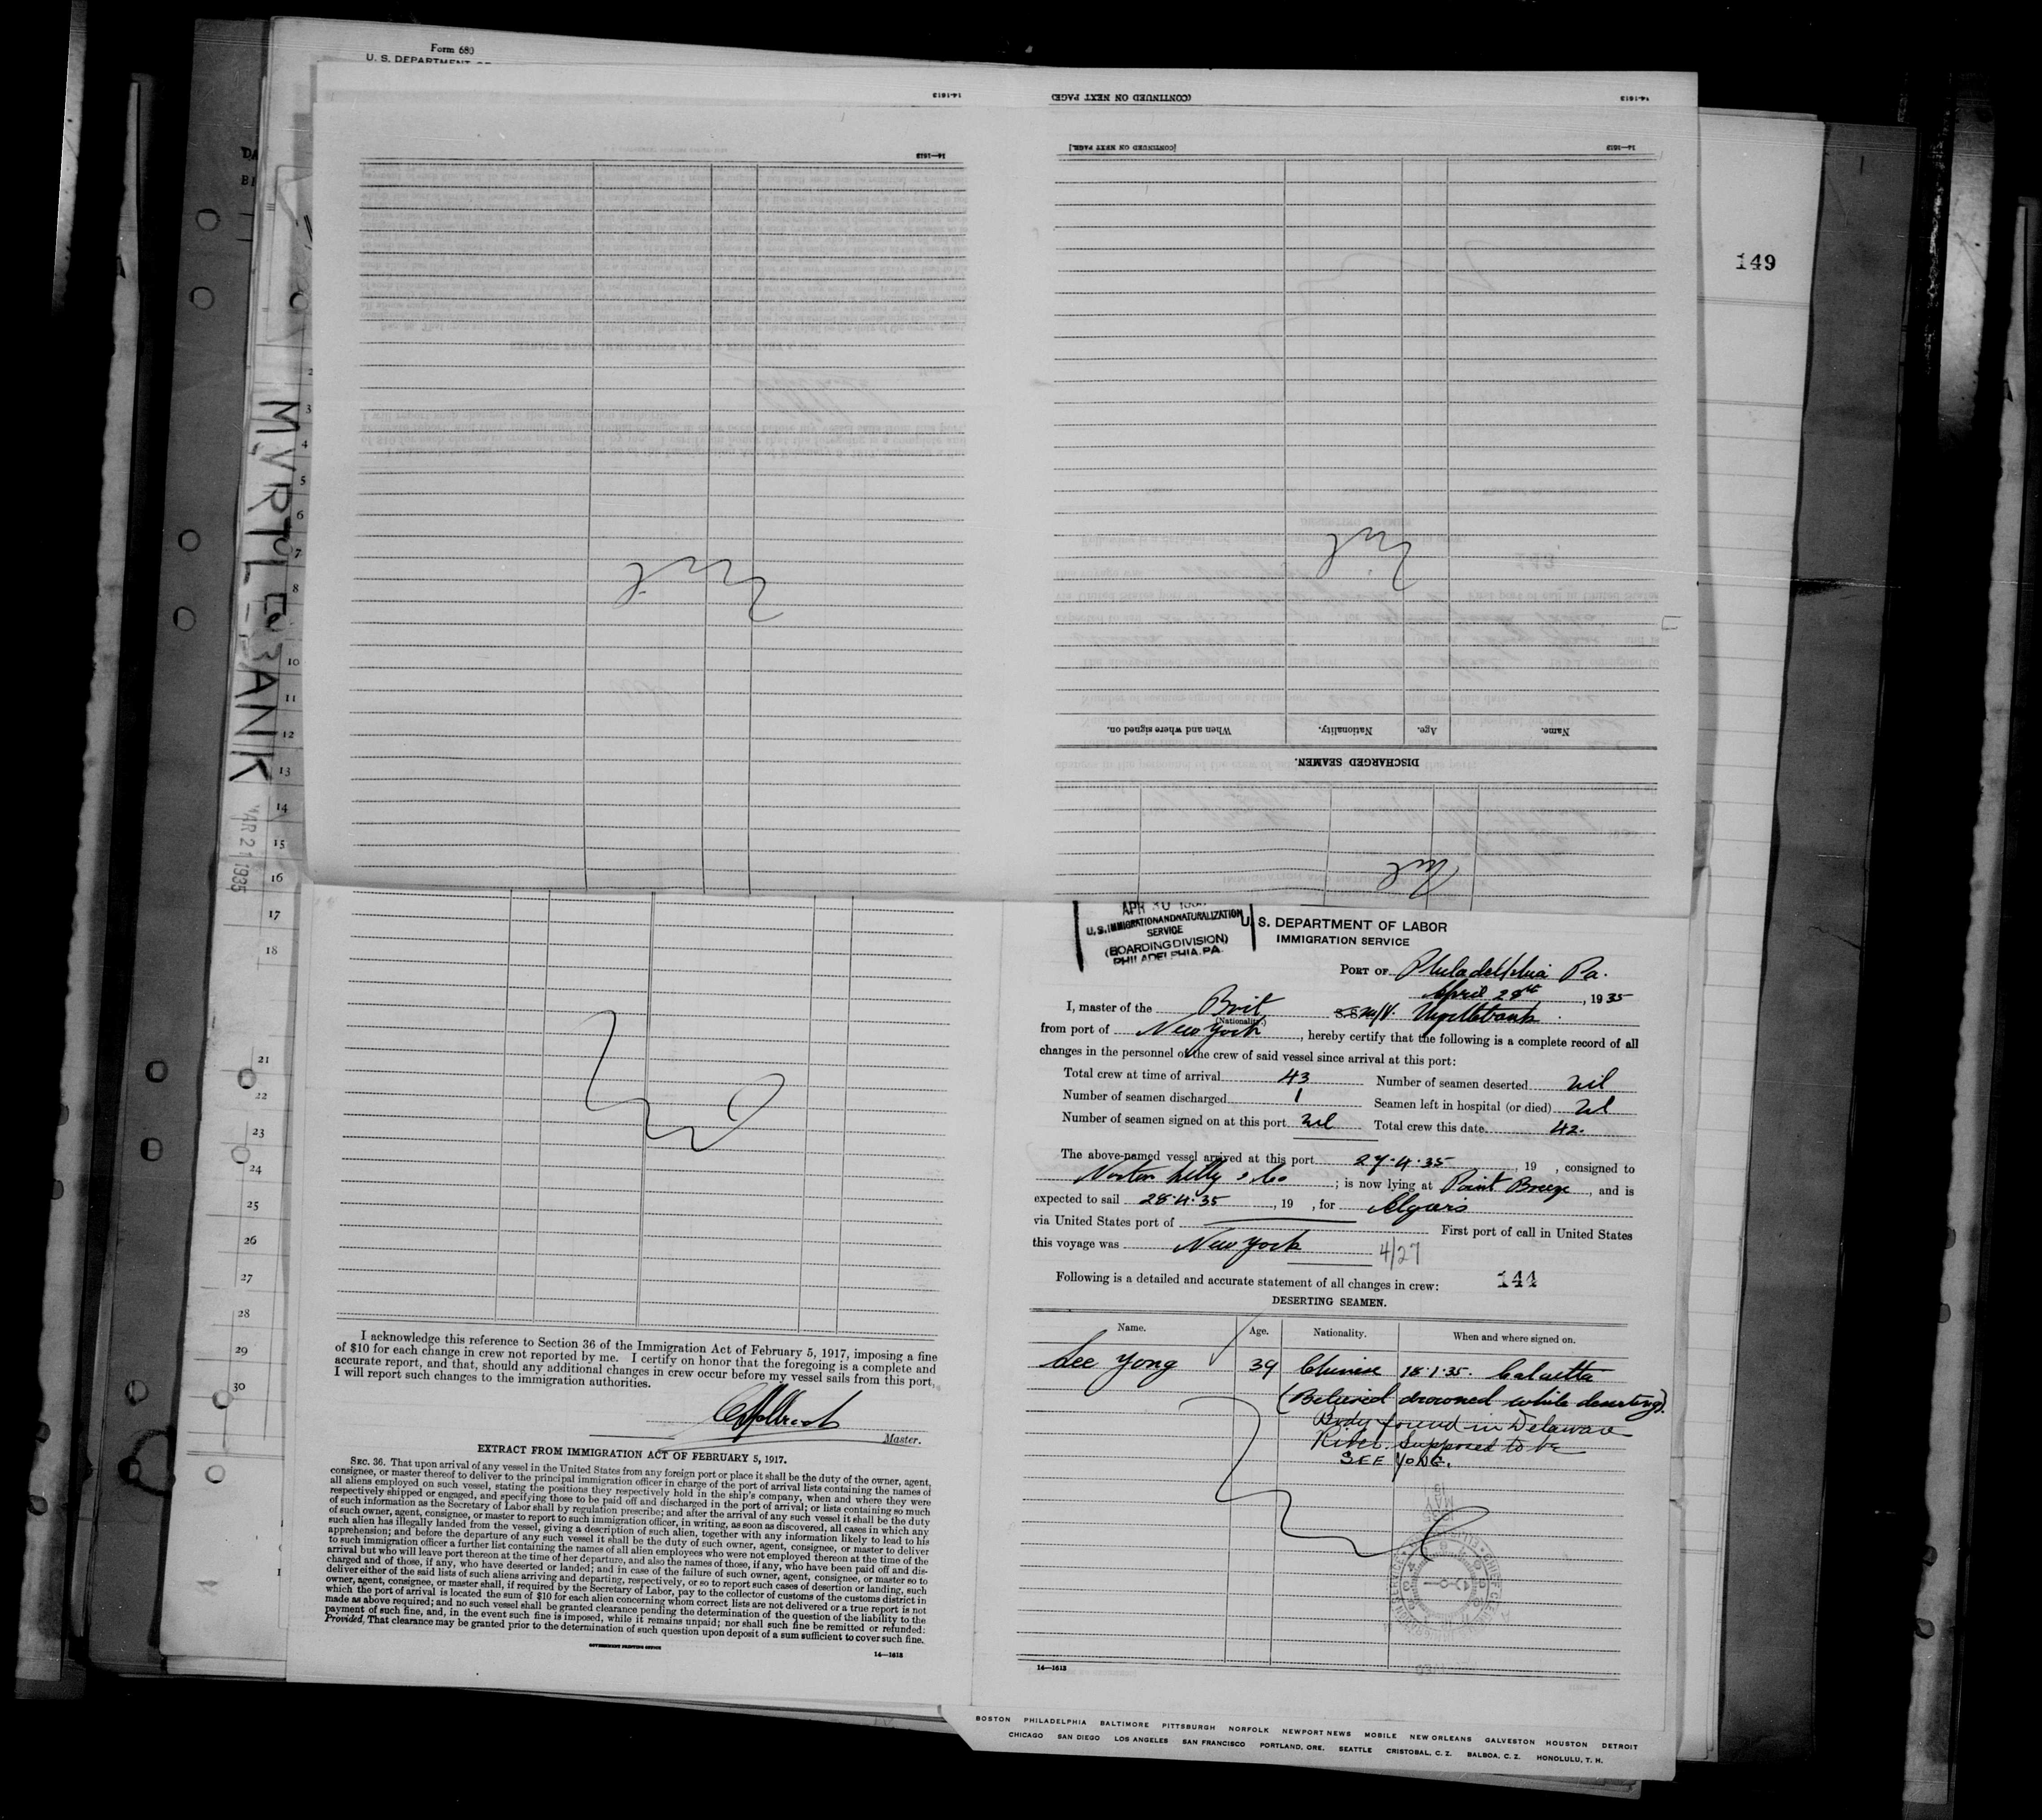 Form 680
U. S. DEPARTMENT OF
14-1613
(CONTINUED ON NEXT PAGE)
14-1613
14—1613
[CONTINUED ON NEXT PAGE.]
14—1613
149
Nil
Nil
When and where signed on.
Nationality.
Age.
Name.
DISCHARGED SEAMEN.
Nil
MYRTLEBANK
MAR 21 1935
3
4
5
6
7
8
10
11
12
13
14
15
16
17
18
21
22
23
24
25
26
27
28
29
30
I acknowledge this reference to Section 36 of the Immigration Act of February 5, 1917, imposing a fine
of $10 for each change in crew not reported by me. I certify on honor that the foregoing is a complete and
accurate report, and that, should any additional changes in crew occur before my vessel sails from this port,
I will report such changes to the immigration authorities.
Master.
EXTRACT FROM IMMIGRATION ACT OF FEBRUARY 5, 1917.
SEC. 36. That upon arrival of any vessel in the United States from any foreign port or place it shall be the duty of the owner, agent,
consignee, or master thereof to deliver to the principal immigration officer in charge of the port of arrival lists containing the names of
all aliens employed on such vessel, stating the positions they respectively hold in the ship's company, when and where they were
respectively shipped or engaged, and specifying those to be paid off and discharged in the port of arrival; or lists containing so much
of such information as the Secretary of Labor shall by regulation prescribe; and after the arrival of any such vessel it shall be the duty
of such owner, agent, consignee, or master to report to such immigration officer, in writing, as soon as discovered, all cases in which any
such alien has illegally landed from the vessel, giving a description of such alien, together with any information likely to lead to his
apprehension; and before the departure of any such vessel it shall be the duty of such owner, agent, consignee, or master to deliver
to such immigration officer a further list containing the names of all alien employees who were not employed thereon at the time of the
arrival but who will leave port thereon at the time of her departure, and also the names of those, if any, who have been paid off and dis-
charged and of those, if any, who have deserted or landed; and in case of the failure of such owner, agent, consignee, or master so to
deliver either of the said lists of such aliens arriving and departing, respectively, or so to report such cases of desertion or landing, such
owner, agent, consignee, or master shall, if required by the Secretary of Labor, pay to the collector of customs of the customs district in
which the port of arrival is located the sum of $10 for each alien concerning whom correct lists are not delivered or a true report is not
made as above required; and no such vessel shall be granted clearance pending the determination of the question of the liability to the
payment of such fine, and, in the event such fine is imposed, while it remains unpaid; nor shall such fine be remitted or refunded:
Provided, That clearance may be granted prior to the determination of such question upon deposit of a sum sufficient to cover such fine.
GOVERNMENT PRINTING OFFICE
14—1613
APR 30
U. S. IMMIGRATION AND NATURALIZATION
SERVICE
(BOARDING DIVISION)
PHILADELPHIA, PA.
U. S. DEPARTMENT OF LABOR
IMMIGRATION SERVICE
PORT OF Philadelphia Pa.
April 28th, 1935
I, master of the Brit S.S. M/V. Myrtlebank
(Nationality.)
from port of New York, hereby certify that the following is a complete record of all
changes in the personnel of the crew of said vessel since arrival at this port:
Total crew at time of arrival 43 Number of seamen deserted nil
Number of seamen discharged 1 Seamen left in hospital (or died) nil
Number of seamen signed on at this port nil Total crew this date 42.
The above-named vessel arrived at this port 27.4.35, 19 , consigned to
Norton Lilly & Co; is now lying at Point Breeze, and is
expected to sail 28.4.35, 19 , for Algiers
via United States port of First port of call in United States
this voyage was New York 4/27
Following is a detailed and accurate statement of all changes in crew: 144
DESERTING SEAMEN.
Name. Age. Nationality. When and where signed on.
See Yong 39 Chinese 18.1.35. Calcutta
(Believed drowned while deserting).
Body found in Delaware
River. Supposed to be
SEE YONG.
14—1613
BOSTON PHILADELPHIA BALTIMORE PITTSBURGH NORFOLK NEWPORT NEWS MOBILE NEW ORLEANS GALVESTON HOUSTON DETROIT
CHICAGO SAN DIEGO LOS ANGELES SAN FRANCISCO PORTLAND, ORE. SEATTLE CRISTOBAL, C. Z. BALBOA, C. Z. HONOLULU, T. H.